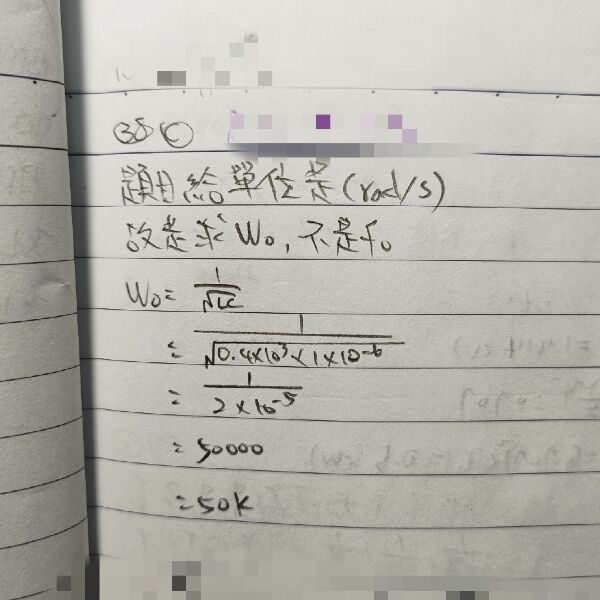 38 C
題目給單位是(rad/s)
故是求W₀,不是f₀
W₀= 1/√LC
= 1/√0.4×10³×1×10⁻⁶
= 1/2×10⁻⁵
= 50000
=50K